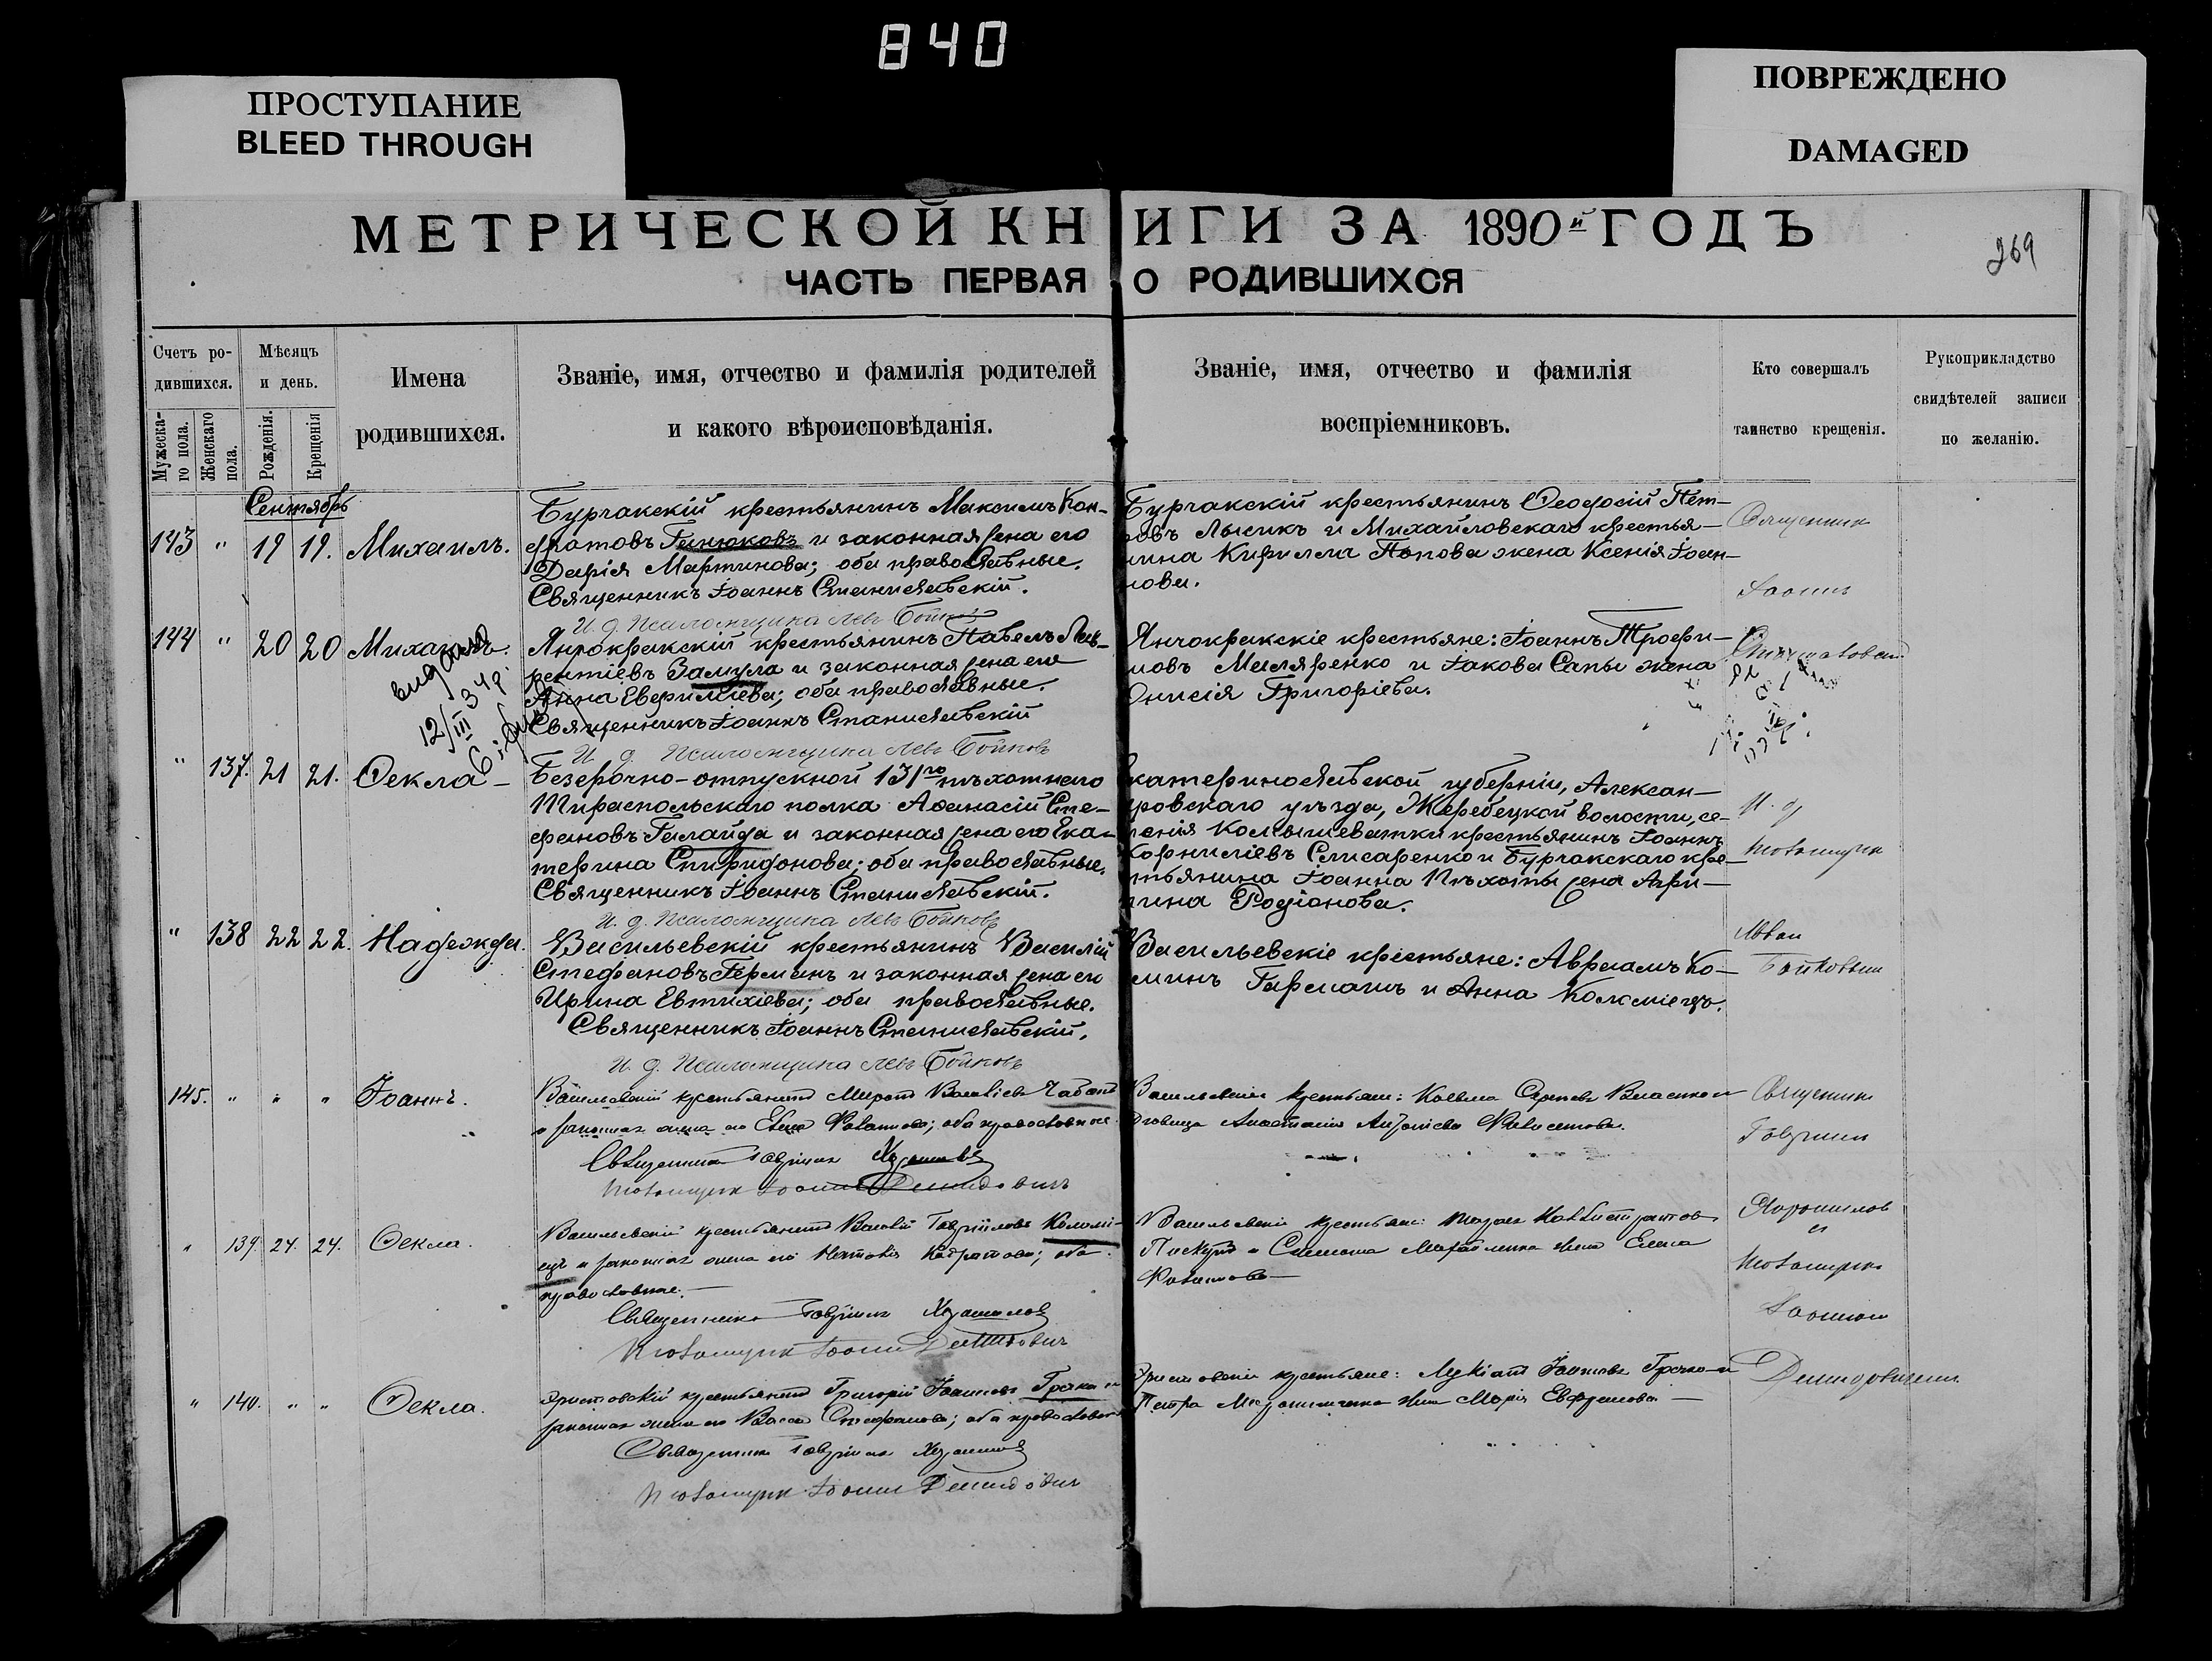 840
ПРОСТУПАНИЕ
BLEED THROUGH
ПОВРЕЖДЕНО
DAMAGED
МЕТРИЧЕСКОЙ КНИГИ ЗА 1890й ГОДЪ
269
ЧАСТЬ ПЕРВАЯ О РОДИВШИХСЯ
Счетъ ро-
дившихся.
Мужеска-
го пола.
Женскаго
пола.
Мѣсяцъ
и день.
Рожденія.
Крещенія
Имена
родившихся.
Званіе, имя, отчество и фамилія родителей
и какого вѣроисповѣданія.
Званіе, имя, отчество и фамилія
воспріемниковъ.
Кто совершалъ
таинство крещенія.
Рукоприкладство
свидѣтелей записи
по желанію.
Сентябрь
143 " 19 19. Михаилъ.
Бурчакскій крестьянинъ Максимъ Кон-
дратовъ Ганюковъ и законная жена его
Дарія Мартинова; оба православные.
Священникъ Іоаннъ Станиславскій.
И. д. Псаломщика Левъ Бойковъ
Бурчакскій крестьянинъ Ѳеодосій Пет-
ровъ Лысикъ и Михайловскаго крестья-
нина Кирилла Попова жена Ксенія Іоан-
нова.
Священник
Іоанн
144 " 20 20 Михаилъ.
12/III
Янчокракскій крестьянинъ Павелъ Лав-
рентіевъ Замула и законная жена его
Анна Евфиміева; оба православные.
Священникъ Іоаннъ Станиславскій
И. д. Псаломщика Левъ Бойковъ
Янчокракскіе крестьяне: Іоаннъ Трофи-
мовъ Маляренко и Іакова Сапы жена
Онисія Григоріева.
" 137. 21 21. Ѳекла
Безсрочно-отпускной 131го пѣхотнаго
Тираспольскаго полка Аѳанасій Сте-
фановъ Галайда и законная жена его Ека-
терина Спиридонова; оба православные.
Священникъ Іоаннъ Станиславскій.
И. д. Псаломщика Левъ Бойковъ
Екатеринославской губерніи, Алексан-
дровскаго уѣзда, Жеребецкой волости, се-
ленія Комышеватки крестьянинъ Іоаннъ
Корниліевъ Слисаренко и Бурчакскаго кре-
стьянина Іоанна Пѣхоты жена Агри-
пина Родіонова.
И. д.
" 138 22 22. Надежда.
Васильевскій крестьянинъ Василій
Стефановъ Германъ и законная жена его
Ирина Евтихіева; оба православные.
Священникъ Іоаннъ Станиславскій.
И. д. Псаломщика Левъ Бойковъ
Васильевскіе крестьяне: Авраамъ Ко-
минъ Гармашъ и Анна Коломіецъ.
Бойковым
145. " " " Іоаннъ.
Васильевскій крестьянинъ Миронъ Чабанъ
и законная жена его Елена; оба православные
Васильевскіе крестьяне: Косьма
девица Анастасія
Священник
Гавріил
" 139. 24. 24. Ѳекла.
Васильевскій крестьянинъ Василій Гавріиловъ Коломі-
ецъ и законная жена его; оба
православные.
Священникъ Гавріилъ
Псаломщикъ Іоаннъ Демидовичъ
Васильевскіе крестьяне:
жена Елена
Псаломщик
Іоанном
" 140. " " Ѳекла.
крестьянинъ Григорій Іоанновъ Гречка и
законная жена его Васса Стефанова; оба православные
Священникъ Гавріилъ
Псаломщикъ Іоаннъ Демидовичъ
крестьяне: Лукіанъ Іоанновъ Гречко и
Петра жена Марія Евфремова
Демидовичем